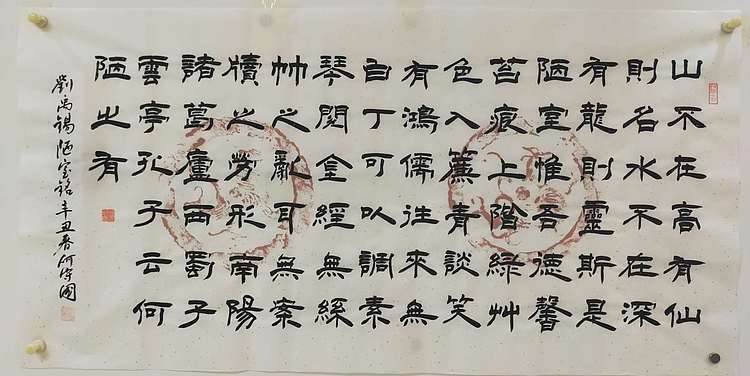 山不在高有仙
則名水不在深
有龍則靈斯是
陋室惟吾德馨
苔痕上階綠艸
色入簾青談笑
有鴻儒往來無
白丁可以調素
琴閱金經無絲
竹之亂耳無案
牘之勞形南陽
諸葛廬西蜀子
雲亭孔子云何
陋之有
劉禹錫陋室銘辛丑春